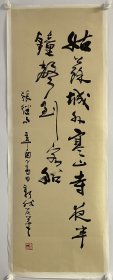 姑蘇城外寒山寺夜半
鐘聲到客船
張繼 辛酉